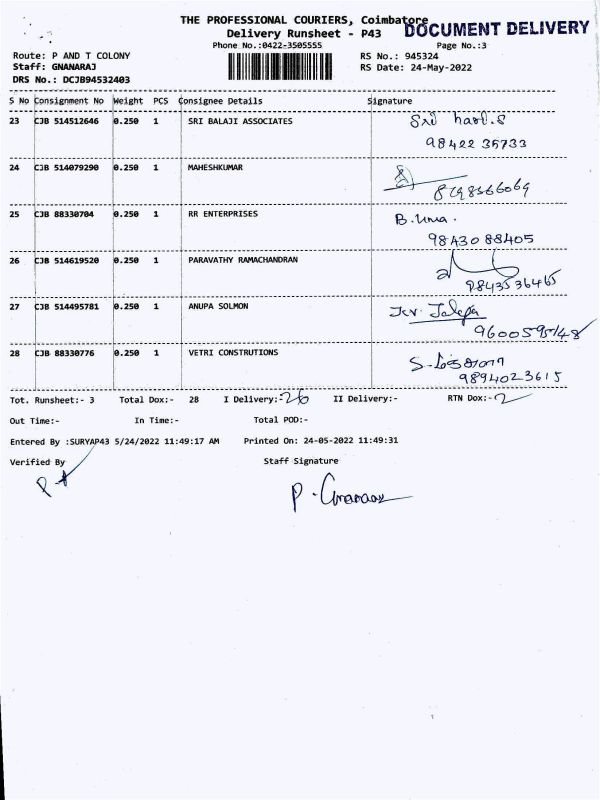 THE PROFESSIONAL COURIERS, Coimbatore
DOCUMENT DELIVERY
Delivery Runsheet - P43
Phone No.:0422-3505555
Page No.:3
Route: P AND T COLONY
RS No.: 945324
Staff: GNANARAJ
RS Date: 24-May-2022
DRS No.: DCJB94532403
S No Consignment No Weight PCS Consignee Details Signature
23 CJB 514512646 0.250 1 SRI BALAJI ASSOCIATES
98422 35733
24 CJB 514079290 0.250 1 MAHESHKUMAR
25 CJB 88330704 0.250 1 RR ENTERPRISES B. Uma.
98430 88405
26 CJB 514619520 0.250 1 PARAVATHY RAMACHANDRAN
9843536465
27 CJB 514495781 0.250 1 ANUPA SOLMON
9600595148
28 CJB 88330776 0.250 1 VETRI CONSTRUTIONS
9894023615
Tot. Runsheet:- 3 Total Dox:- 28 I Delivery:- 26 II Delivery:- RTN Dox:- 2
Out Time:- In Time:- Total POD:-
Entered By :SURYAP43 5/24/2022 11:49:17 AM Printed On: 24-05-2022 11:49:31
Verified By Staff Signature